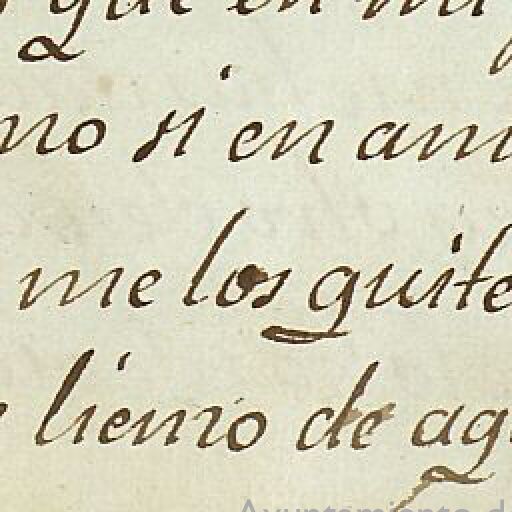 que en mi
no si en am
me los quite
lienzo de ag
Ayuntamiento d